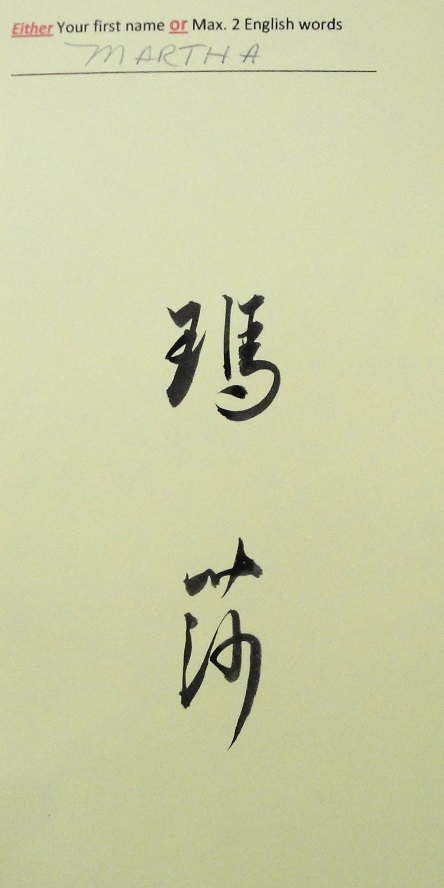 Either Your first name or Max. 2 English words
MARTHA
瑪
莎